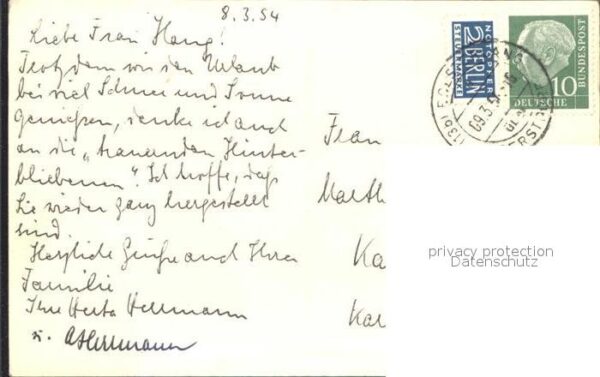 8.3.54
Liebe Frau Haug!
Trotzdem wir den Urlaub
bei viel Schnee und Sonne
genießen, denke ich auch
an die „trauernden Hinter-
bliebenen". Ich hoffe, daß
Sie wieder ganz hergestellt
sind.
Herzliche Grüße auch Ihrer
Familie
Ihre Herta Herrmann
u. Herrmann
Frau
Marth
Ka
Kar
NOTOPFER
2 BERLIN
STEUERMARKE
DEUTSCHE
BUNDESPOST
10
09.3.54
privacy protection
Datenschutz